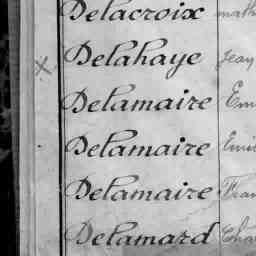 Delacroix math
x Delahaye Jean
Delamaire Em
Delamaire Emil
Delamaire Fran
Delamard Cha